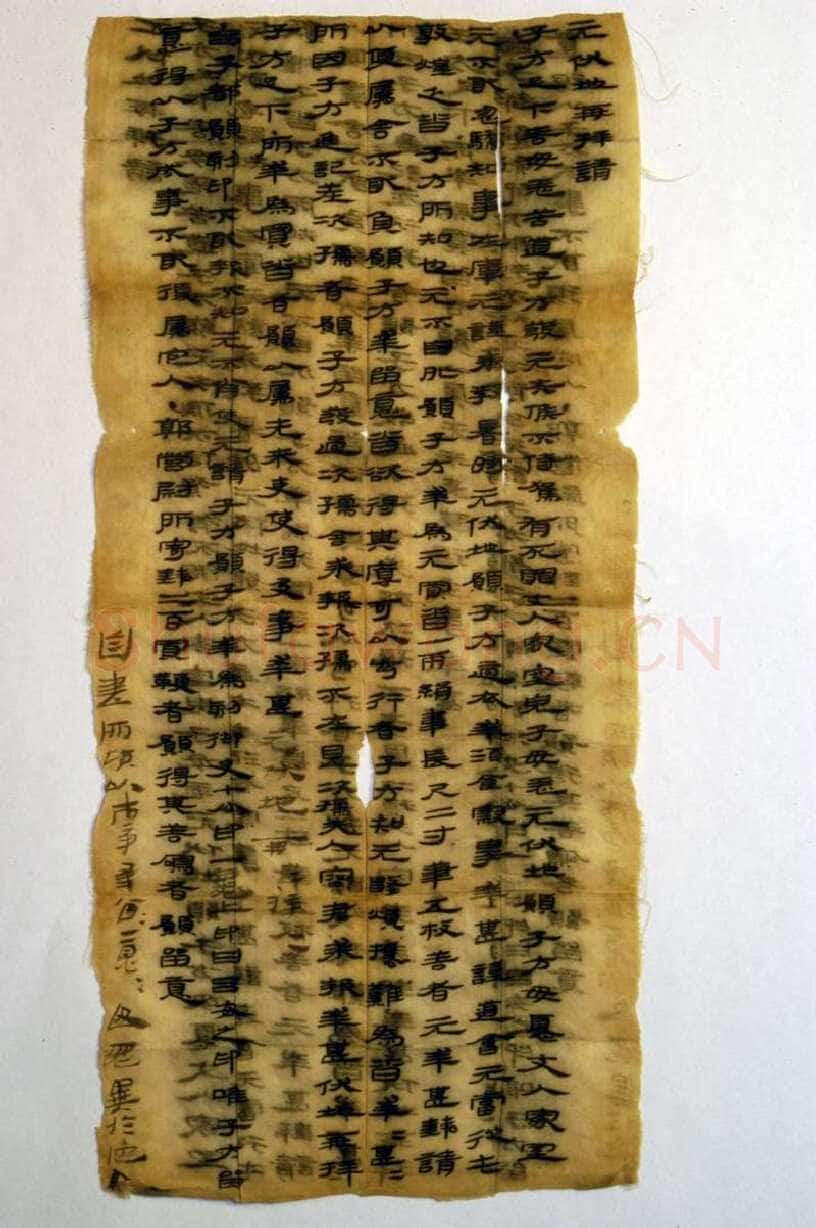 元伏地再拜請
子方足下善毋恙苦道子方發元失候不侍駕有死罪丈人家室兒子毋恙元伏地願子方毋憂丈人家室
元不敢忽驕知事在庫元謹奉教暑時元伏地願子方適衣幸酒食察事幸甚謹道會元當從屯
敦煌乏沓子方所知也元不自外願子方幸為元買沓一兩絹韋長尺二寸筆五枚善者元幸甚錢請
以便屬舍不敢負願子方幸留意沓欲得其厚可以步行者子方知元數煩擾難為沓幸=甚=
所因子方進記差次孺者願子方發過次孺舍求報次孺不在見次孺夫人容君求報幸甚伏地再拜
子方足下所幸為買沓者願以屬先來吏使得及事幸甚元伏地再拜
呂子都願刻印不敢報不知元不肖使元請子方願子方幸為刻御史七分印一龜上印曰呂安之印唯子方留
意得以子方成事不敢復屬它人·郭營尉所寄錢二百買鞭者願得其善鳴者願留意
自書所願以市事幸=留=意=毋忽異於它人